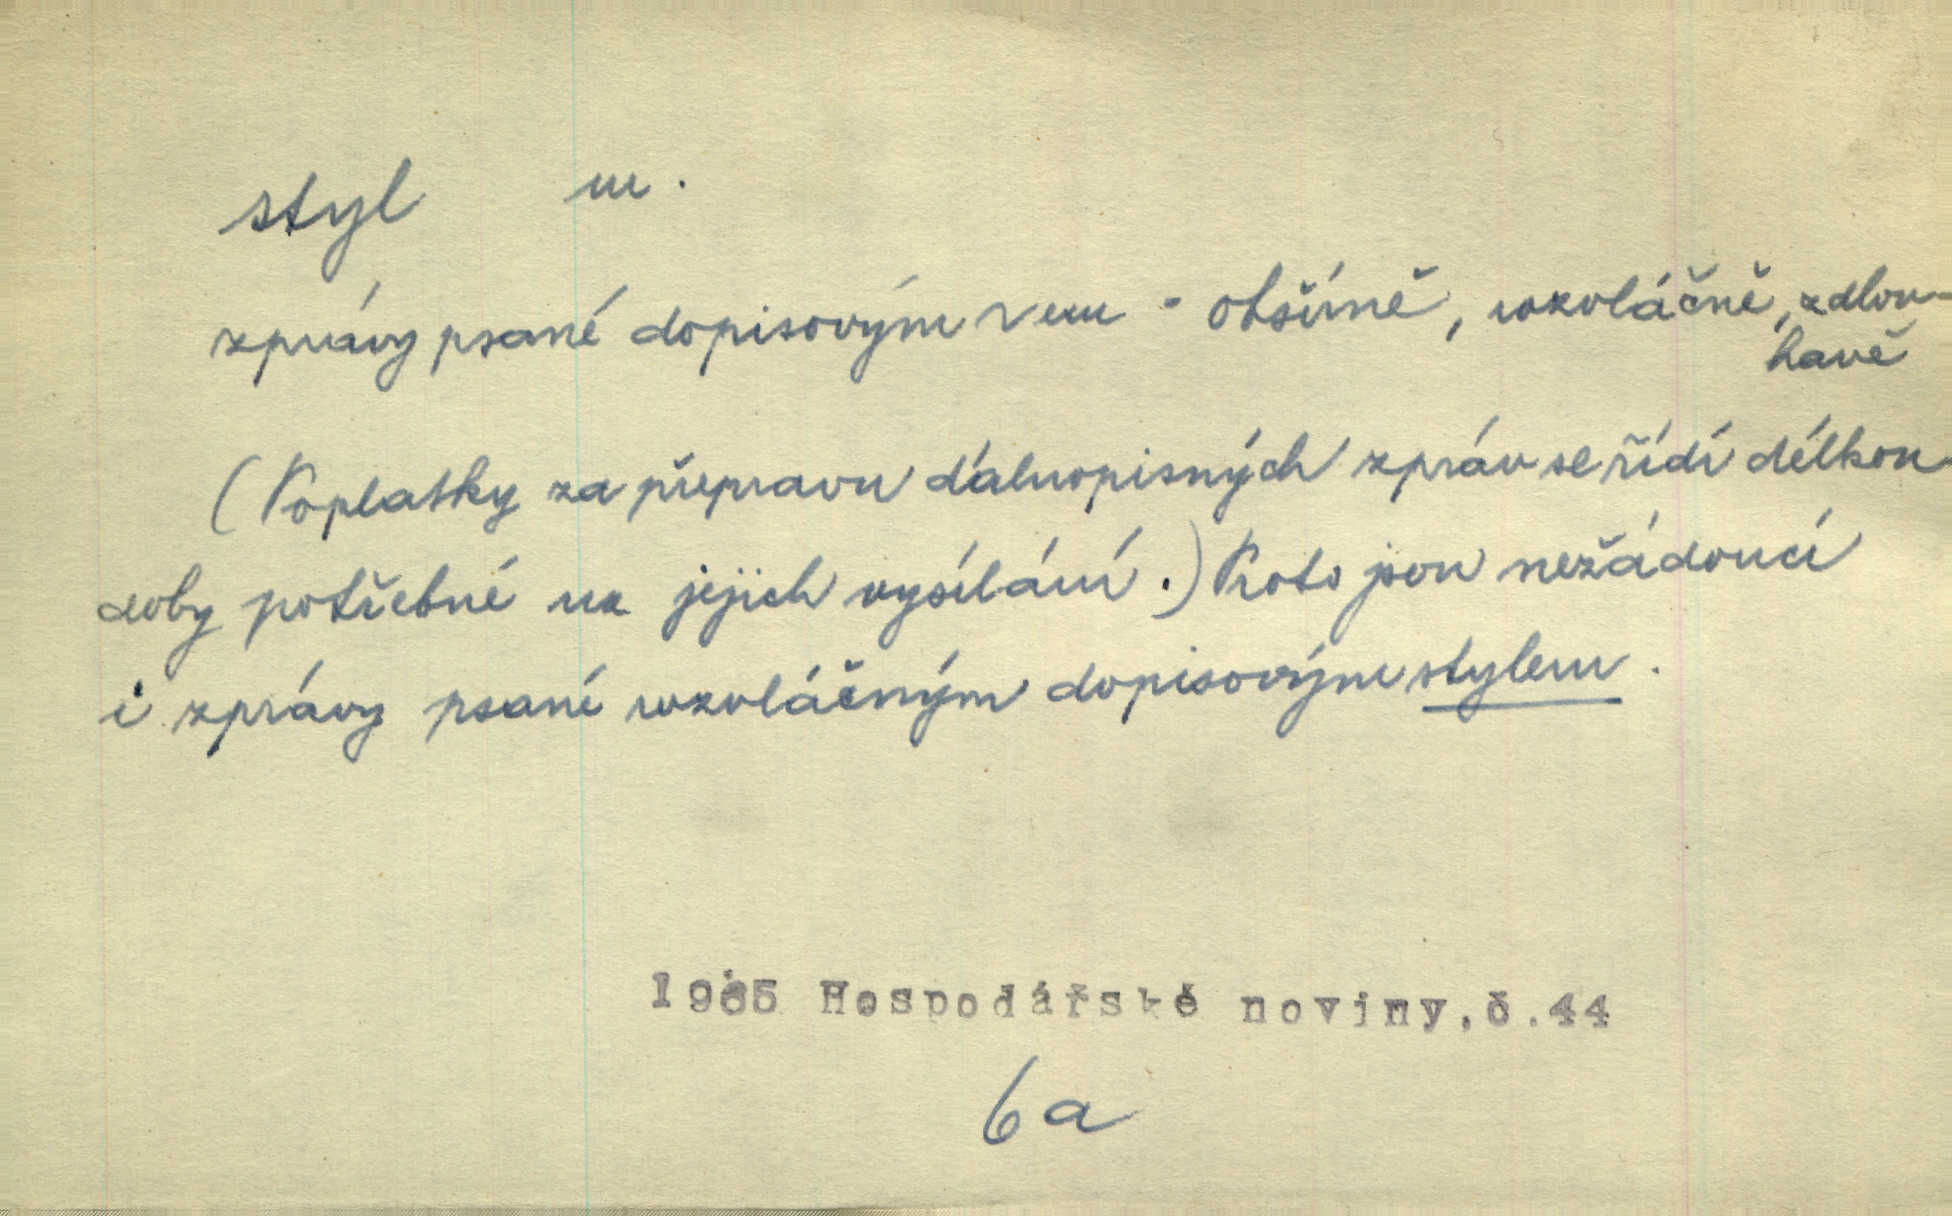 styl m.
zprávy psané dopisovým ~em - obšírně, rozvláčně, zdlou-
havě
(Poplatky za přepravu dálnopisných zpráv se řídí délkou
doby potřebné na jejich vysílání.) Proto jsou nežádoucí
i zprávy psané rozvláčným dopisovým stylem.
1965 Hospodářské noviny, č.44
6a